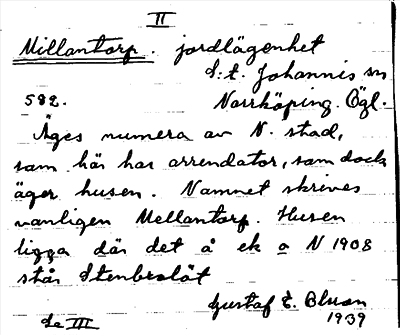 II
Millantorp. jordlägenhet
S:t. Johannis sn
582. Norrköping. Ögl.
Äges numera av N. stad,
som här har arrendator, som dock
äger husen. Namnet skrives
vanligen Mellantorp. Husen
ligga där det å ek a N 1908
står Stenbrolöt
Gustaf E. Bluon
Se III 1939